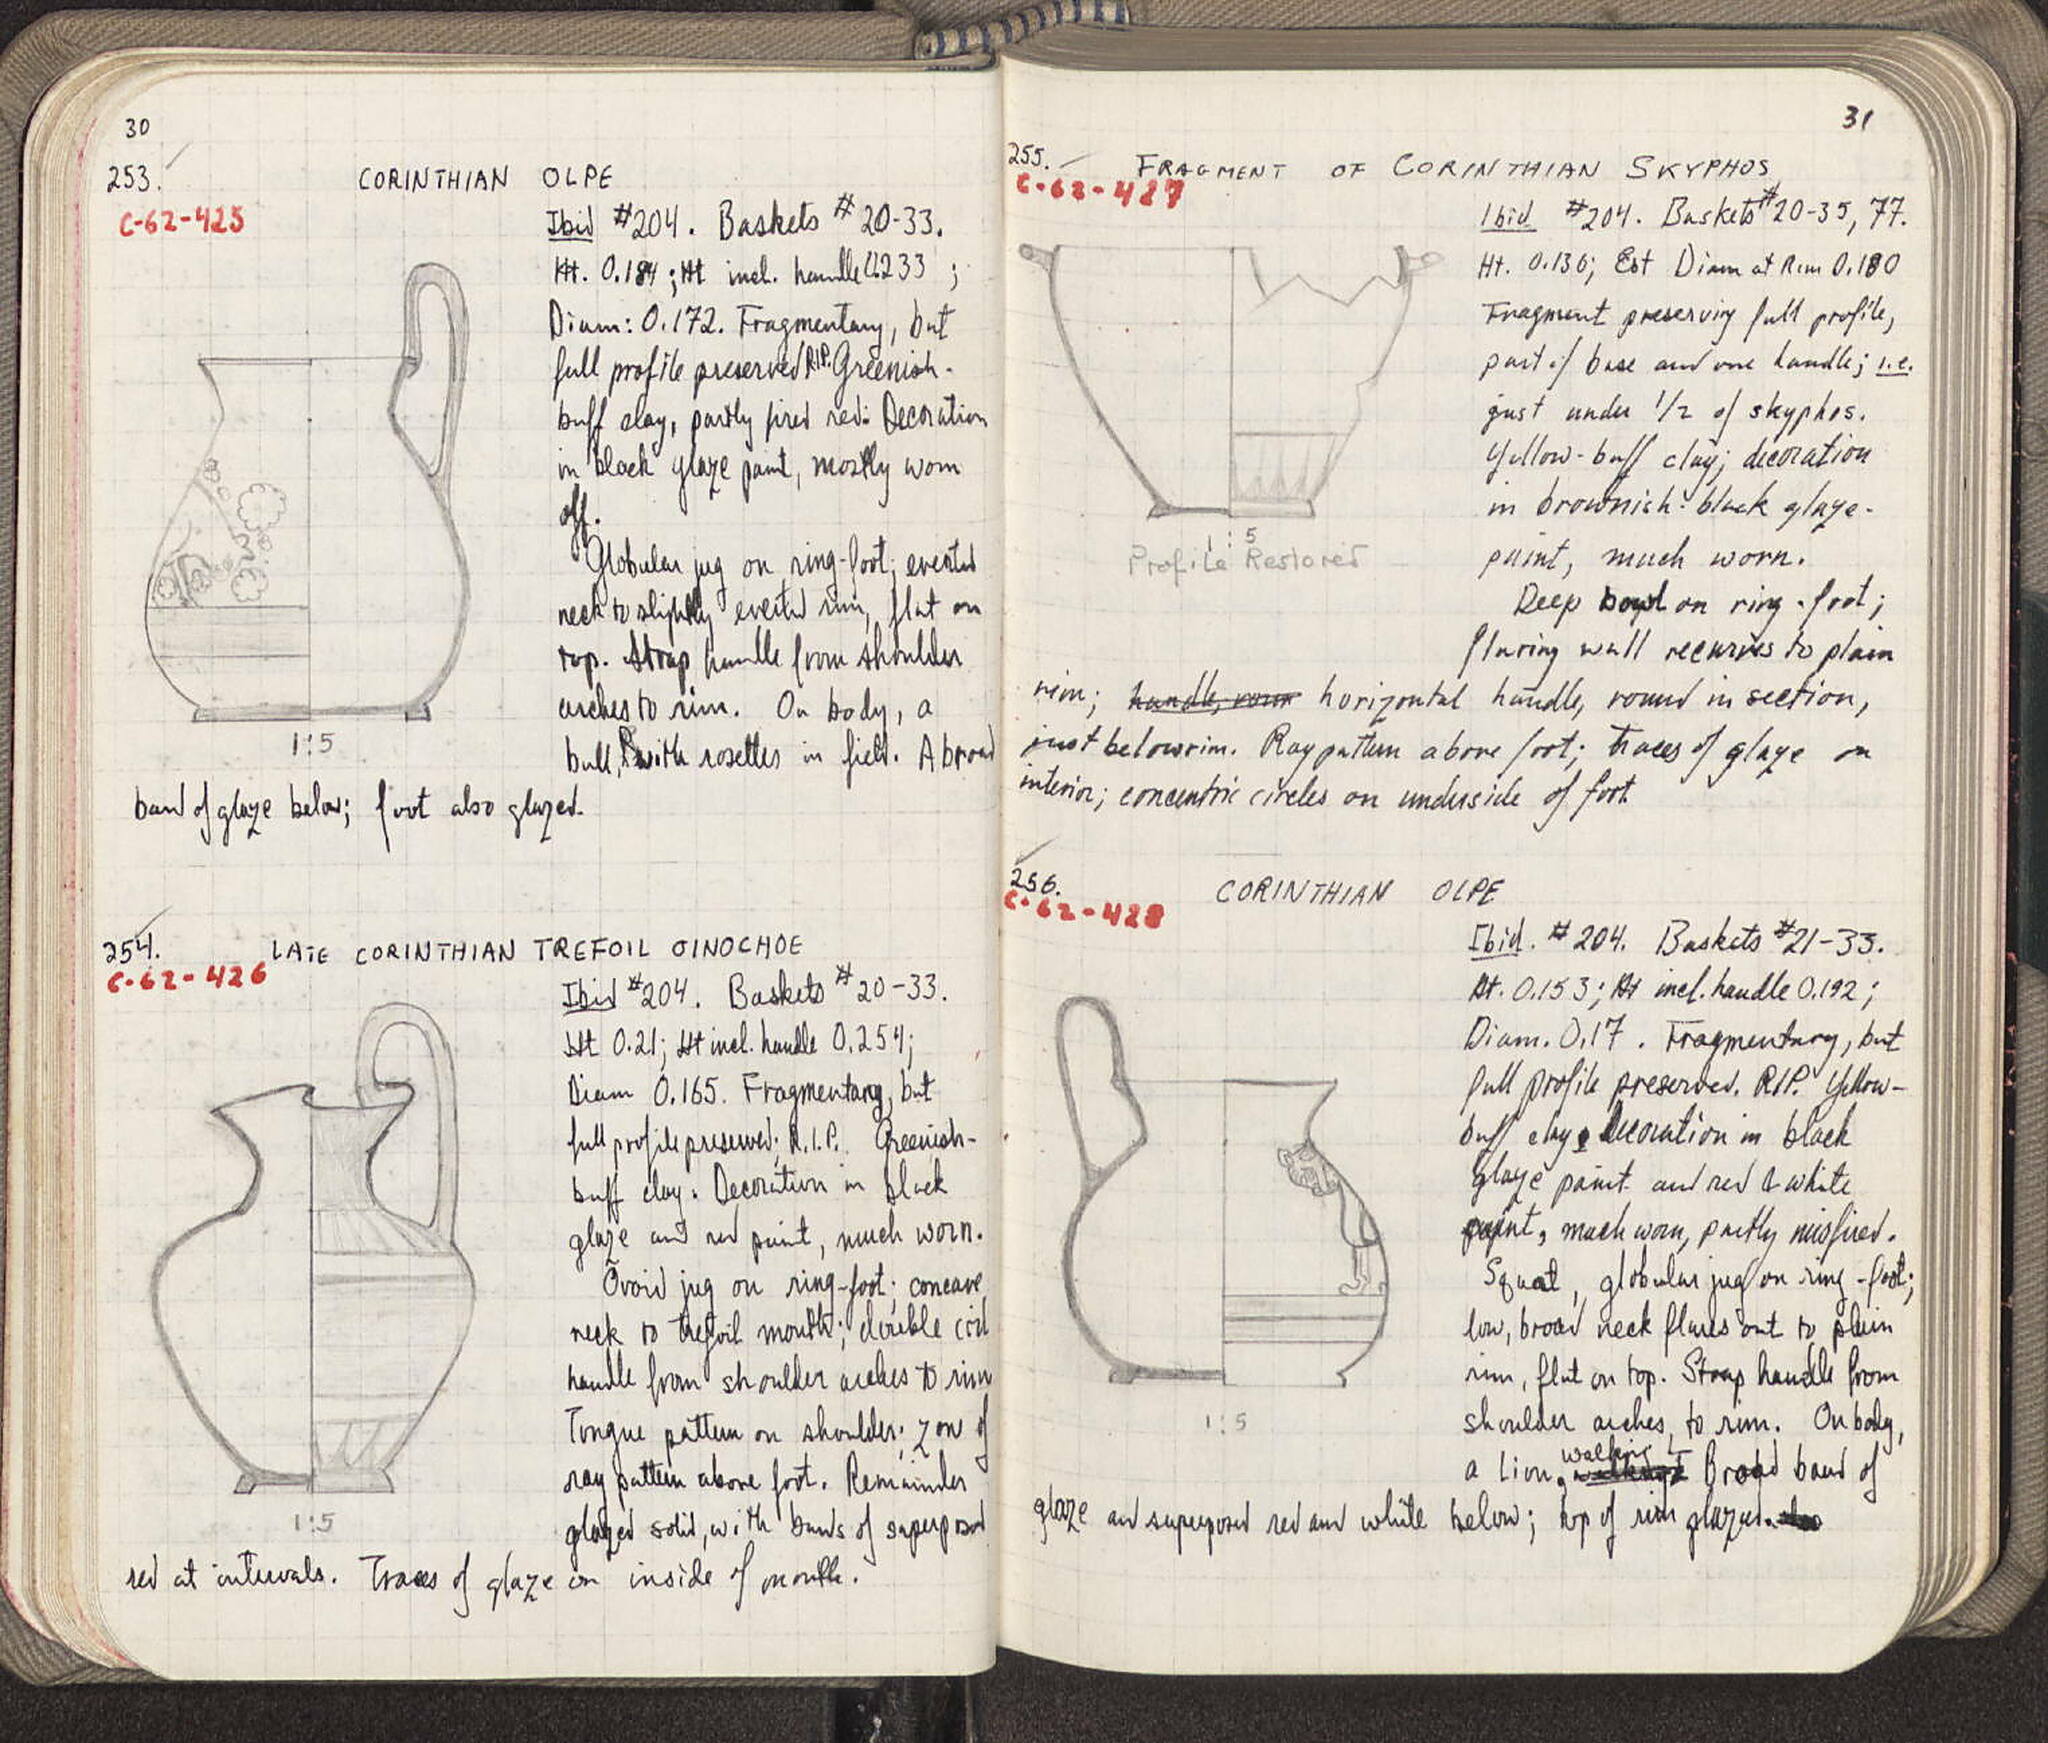 30
253.
CORINTHIAN OLPE
C-62-425
Ibid #204. Baskets #20-33.
Ht. 0.184; Ht incl. handle 0.233;
Diam: 0.172. Fragmentary, but
full profile preserved R.I.P. Greenish-
buff clay, partly fired red. Decoration
in black glaze paint, mostly worn
off.
Globular jug on ring-foot; everted
neck to slightly everted rim, flat on
top. Strap handle from shoulder
arches to rim. On body, a
bull, R with rosettes in field. A broad
band of glaze below; foot also glazed.
1:5
254.
LATE CORINTHIAN TREFOIL OINOCHOE
C-62-426
Ibid #204. Baskets #20-33.
Ht 0.21; Ht incl. handle 0.254;
Diam 0.165. Fragmentary, but
full profile preserved; R.I.P. Greenish-
buff clay. Decoration in black
glaze and red paint, much worn.
Ovoid jug on ring-foot; concave
neck to trefoil mouth; double coil
handle from shoulder arches to rim
Tongue pattern on shoulder; zone of
ray pattern above foot. Remainder
glazed solid, with bands of superposed
red at intervals. Traces of glaze on inside of mouth.
1:5
31
255.
FRAGMENT OF CORINTHIAN SKYPHOS
C-62-427
Ibid #204. Baskets #20-35, 77.
Ht. 0.130; Est Diam at Rim 0.180
Fragment preserving full profile,
part of base and one handle; i.e.
just under 1/2 of skyphos.
Yellow-buff clay; decoration
in brownish-black glaze-
paint, much worn.
Deep bowl on ring-foot;
flaring wall recurves to plain
rim; handle, roun horizontal handle, round in section,
just below rim. Ray pattern above foot; traces of glaze on
interior; concentric circles on underside of foot.
1:5
Profile Restored
256.
CORINTHIAN OLPE
C-62-428
Ibid. #204. Baskets #21-33.
Ht. 0.153; Ht incl. handle 0.192;
Diam. 0.17. Fragmentary, but
full profile preserved. R.I.P. Yellow-
buff clay. Decoration in black
glaze paint and red & white
paint, much worn, partly misfired.
Squat, globular jug on ring-foot;
low, broad neck flares out to plain
rim, flat on top. Strap handle from
shoulder arches to rim. On body,
a lion, walking L Broad band of
glaze and superposed red and white below; top of rim glazed.
1:5